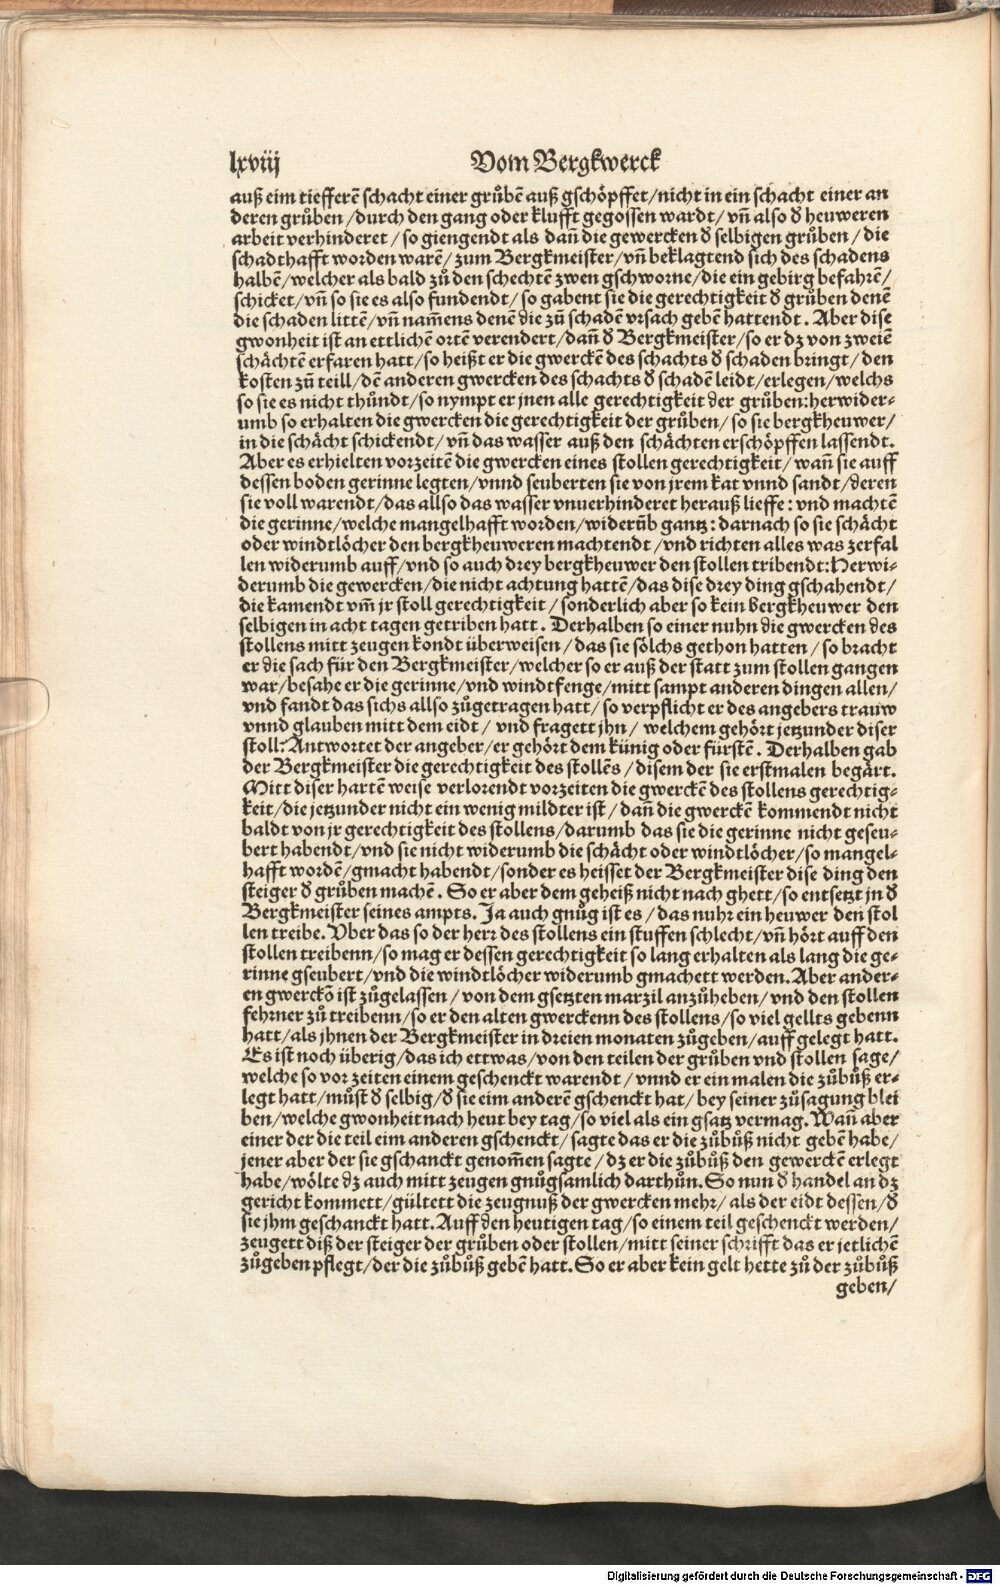 lxviij Vom Bergkwerck
auß eim tiefferẽ schacht einer grůbẽ auß gschöpffet/nicht in ein schacht einer an
deren grůben/durch den gang oder klufft gegossen wardt/vñ also ð heuweren
arbeit verhinderet/so giengendt als dañ die gewercken ð selbigen grůben/die
schadthafft worden warẽ/zum Bergkmeister/vñ beklagtend sich des schadens
halbẽ/welcher als bald zů den schechtẽ zwen gschworne/die ein gebirg befahrẽ/
schicket/vñ so sie es also fundendt/so gabent sie die gerechtigkeit ð grůben denẽ
die schaden littẽ/vñ nam̃ens denẽ die zů schadẽ vrsach gebẽ hattendt. Aber dise
gwonheit ist an ettlichen ortẽ verendert/dañ ð Bergkmeister/so er dz von zweiẽ
schächtẽ erfaren hatt/so heißt er die gwerckẽ des schachts ð schaden bringt/den
kosten zů teill/dẽ anderen gwercken des schachts ð schadẽ leidt/erlegen/welchs
so sie es nicht thůndt/so nympt er jnen alle gerechtigkeit der grůben:herwider-
umb so erhalten die gwercken die gerechtigkeit der grůben/so sie bergkheuwer/
in die schächt schickendt/vñ das wasser auß den schächten erschöpffen lassendt.
Aber es erhielten vorzeitẽ die gwercken eines stollen gerechtigkeit/wañ sie auff
dessen boden gerinne legten/vnnd seuberten sie von jrem kat vnnd sandt/deren
sie voll warendt/das allso das wasser vnuerhinderet herauß lieffe:vnd machtẽ
die gerinne/welche mangelhafft worden/widerũb gantz:darnach so sie schächt
oder windtlöcher den bergkheuweren machtendt/vnd richten alles was zerfal
len widerumb auff/vnd so auch drey bergkheuwer den stollen tribendt:Herwi-
derumb die gewercken/die nicht achtung hattẽ/das dise drey ding gschahendt/
die kamendt vm̃ jr stoll gerechtigkeit/sonderlich aber so kein bergkheuwer den
selbigen in acht tagen getriben hatt. Derhalben so einer nuhn die gwercken des
stollens mitt zeugen kondt überweisen/das sie sölchs gethon hatten/so bracht
er die sach für den Bergkmeister/welcher so er auß der statt zum stollen gangen
war/besahe er die gerinne/vnd windtfenge/mitt sampt anderen dingen allen/
vnd fandt das sichs allso zůgetragen hatt/so verpflicht er des angebers trauw
vnnd glauben mitt dem eidt/vnd fragett jhn/welchem gehört jetzunder diser
stoll:Antwortet der angeber/er gehört dem künig oder fürstẽ. Derhalben gab
der Bergkmeister die gerechtigkeit des stollẽs/disem der sie erstmalen begärt.
Mitt diser hartẽn weise verlorendt vorzeiten die gwerckẽ des stollens gerechtig-
keit/die jetzunder nicht ein wenig mildter ist/dañ die gwerckẽ kommendt nicht
baldt von jr gerechtigkeit des stollens/darumb das sie die gerinne nicht geseu-
bert habendt/vnd sie nicht widerumb die schächt oder windtlöcher/so mangel-
hafft wordẽ/gmacht habendt/sonder es heisset der Bergkmeister dise ding den
steiger ð grůben machẽ. So er aber dem geheiß nicht nach ghett/so entsetzt jn ð
Bergkmeister seines ampts. Ja auch gnůg ist es/das nuhr ein heuwer den stol
len treibe. Vber das so der herr des stollens ein stuffen schlecht/vñ hört auff den
stollen treibenn/so mag er dessen gerechtigkeit so lang erhalten als lang die ge-
rinne gseubert/vnd die windtlöcher widerumb gmachett werden. Aber ander-
en gwerckõ ist zůgelassen/von dem gsetzten marzil anzůheben/vnd den stollen
fehrner zů treibenn/so er den alten gwerckenn des stollens/so viel gellts gebenn
hatt/als jhnen der Bergkmeister in dreien monaten zůgeben/auff gelegt hatt.
Es ist noch überig/das ich ettwas/von den teilen der grůben vnd stollen sage/
welche so vor zeiten einem geschenckt warendt/vnnd er ein malen die zůbůß er-
legt hatt/můst ð selbig/ð sie eim anderẽ gschenckt hat/bey seiner zůsagung blei
ben/welche gwonheit nach heut bey tag/so viel als ein gsatz vermag. Wañ aber
einer der die teil eim anderen gschenckt/sagte das er die zůbůß nicht gebẽ habe/
jener aber der sie gschanckt genom̃en sagte/dz er die zůbůß den gewerckẽ erlegt
habe/wölte dz auch mitt zeugen gnůgsamlich darthůn. So nun ð handel an dz
gericht kommett/gültett die zeugnuß der gwercken mehr/als der eidt dessen/ð
sie jhm geschanckt hatt. Auff den heutigen tag/so einem teil geschenckt werden/
zeugett diß der steiger der grůben oder stollen/mitt seiner schrifft das er jetlichẽ
zůgeben pflegt/der die zůbůß gebẽ hatt. So er aber kein gelt hette zů der zůbůß
geben/
Digitalisierung gefördert durch die Deutsche Forschungsgemeinschaft - DFG